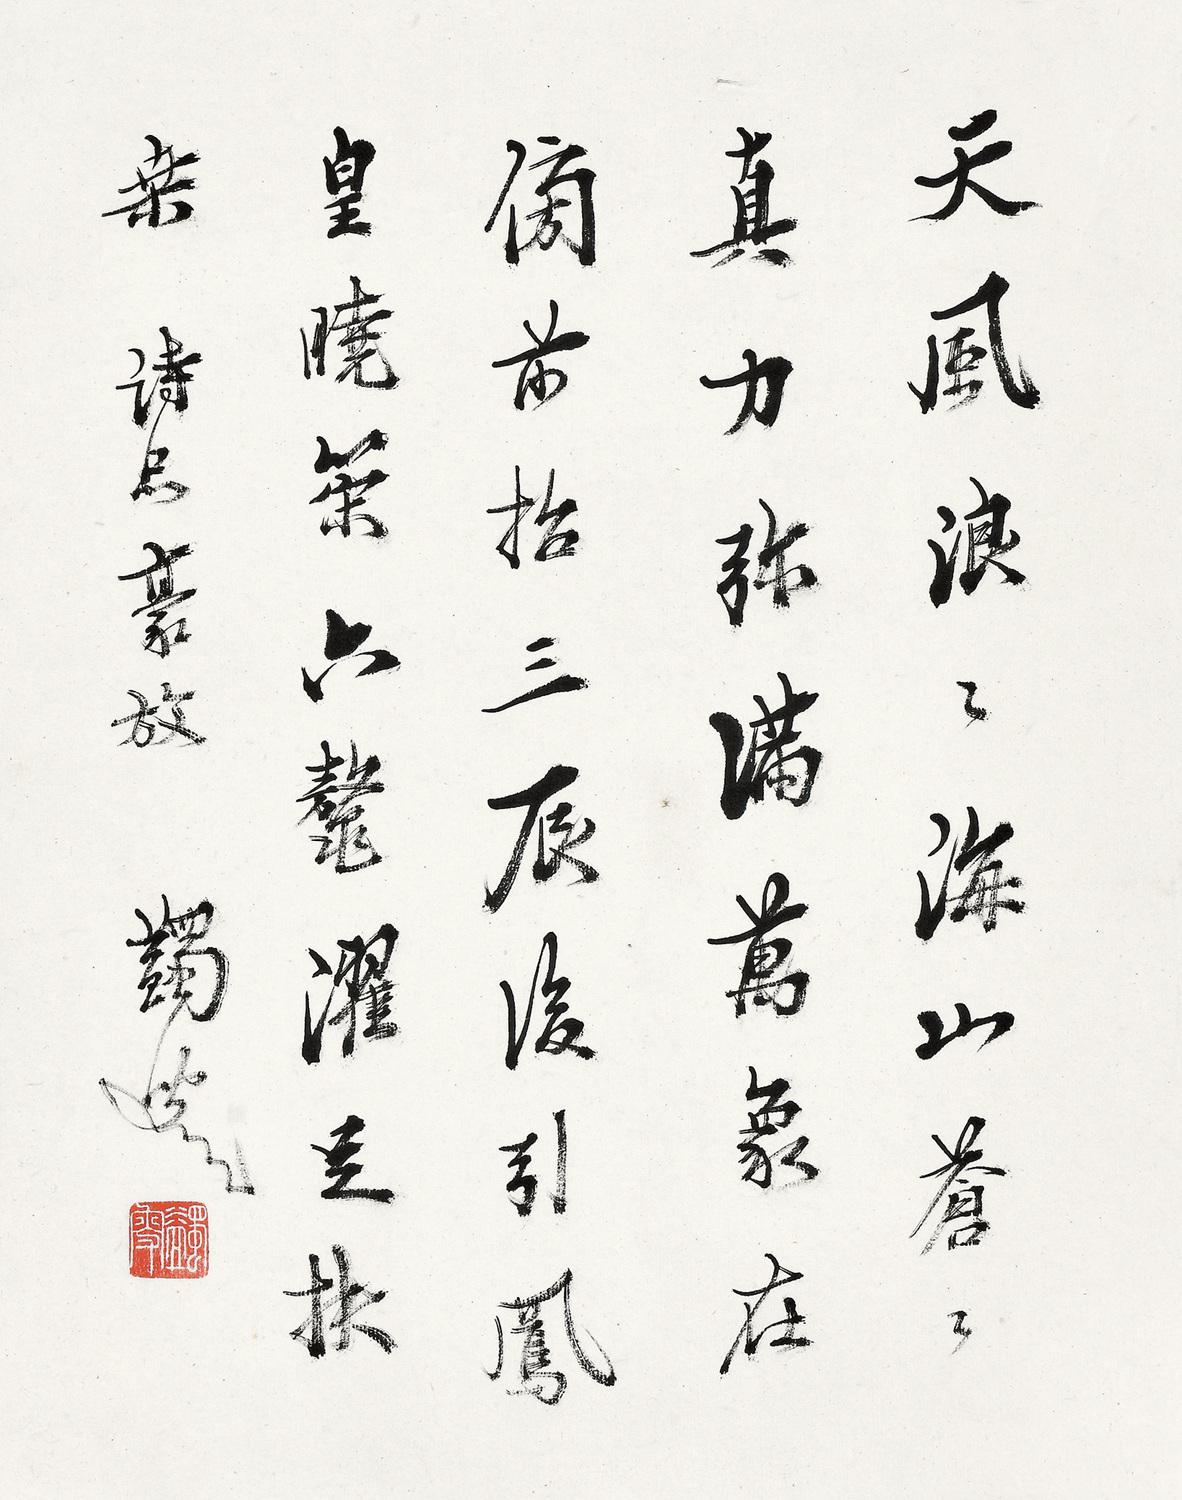 天風浪〻海山蒼〻
真力弥滿萬象在
傍前招三辰後引鳳
皇曉策六鼇濯足扶
桒 詩品豪放 蠲叟
蠲叟